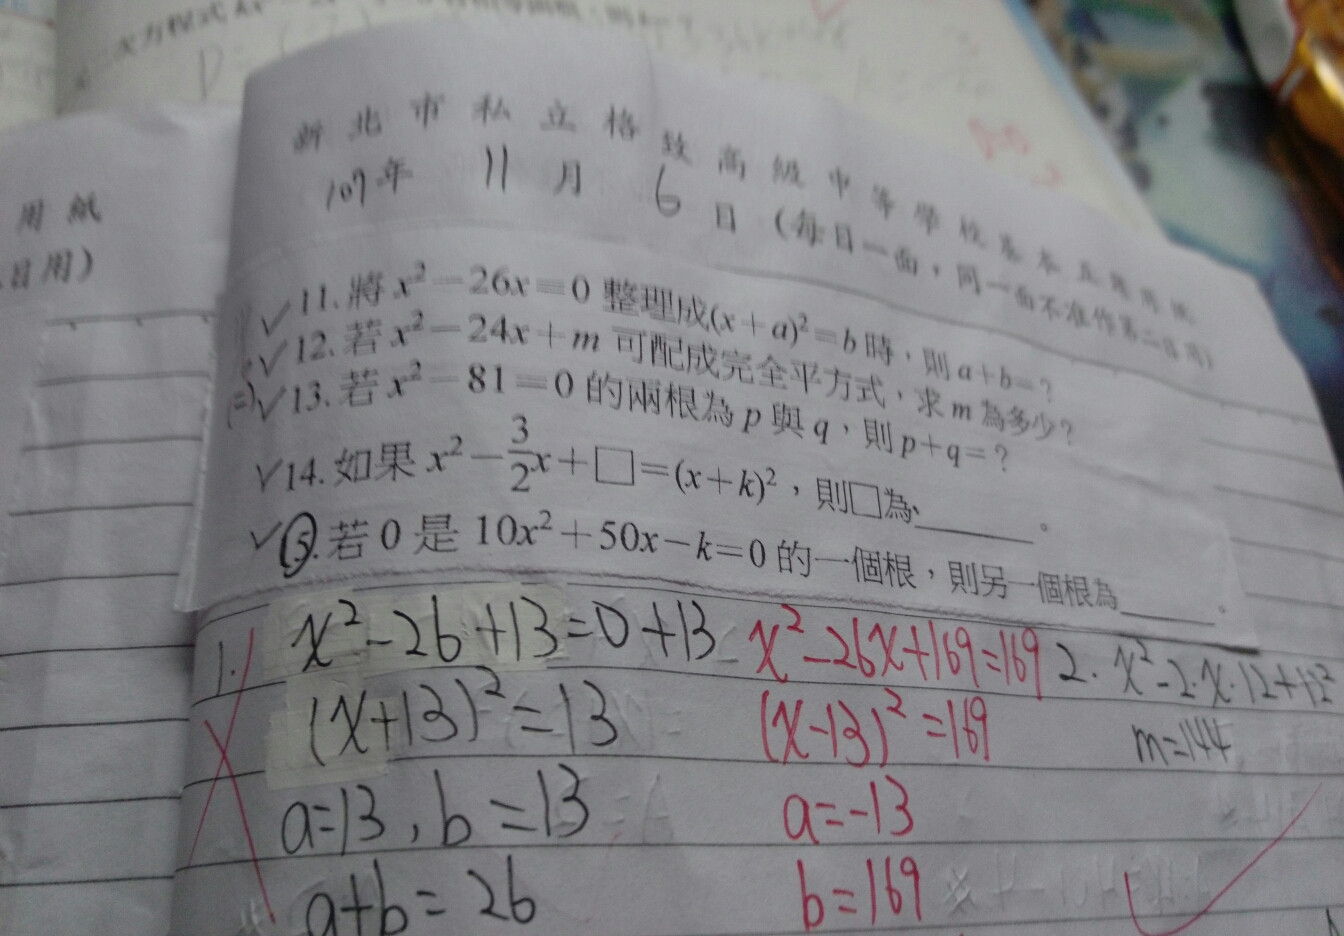 次方程式
用紙
日用)
新北市私立格致高級中等學校基本
109年 11月 6日 (每日一面,同一面不准作第二次用)
✓11. 將 x² − 26x = 0 整理成(x + a)² = b 時,則 a + b = ?
✓12. 若 x² − 24x + m 可配成完全平方式,求 m 為多少?
(二)✓13. 若 x² − 81 = 0 的兩根為 p 與 q,則 p + q = ?
✓14. 如果 x² − 3/2 x + □ = (x + k)²,則□為______。
✓⑤. 若 0 是 10x² + 50x − k = 0 的一個根,則另一個根為______。
1. x² − 26 + 13 = 0 + 13
(x + 13)² = 13
a = 13 , b = 13
a + b = 26
x² − 26x + 169 = 169
(x − 13)² = 169
a = −13
b = 169
2. x² − 2·x·12 + 12²
m = 144